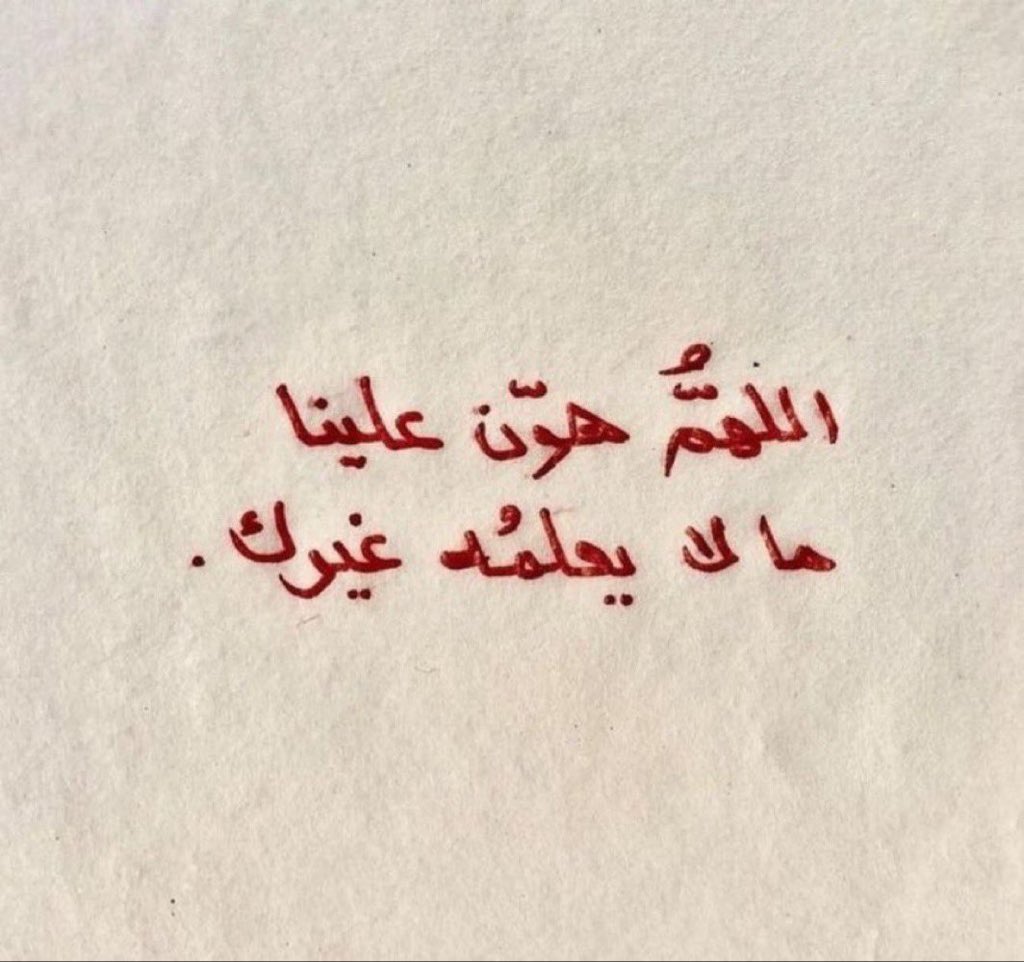 اللهمُّ هوّن علينا
ما لا يعلمُه غيرك .